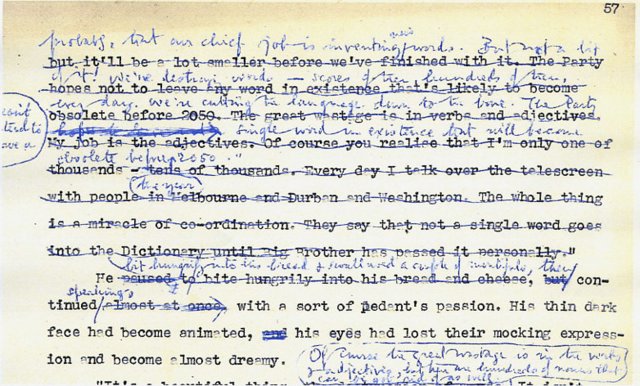 57
new
probably, that our chief job is inventing words. But not a bit
but it'll be a lot smaller before we've finished with it. The Party
of it! We're destroying words — scores of them, hundreds of them,
hopes not to leave any word in existence that's likely to become
every day. We're cutting the language down to the bone. The Party
obsolete before 2050. The great wastage is in verbs and adjectives.
single word in existence that will become
My job is the adjectives. Of course you realise that I'm only one of
obsolete before 2050."
thousands - tens of thousands. Every day I talk over the telescreen
the year
with people in Melbourne and Durban and Washington. The whole thing
is a miracle of co-ordination. They say that not a single word goes
into the Dictionary until Big Brother has passed it personally."
bit hungrily into his bread & swallowed a couple of mouthfuls, then
He paused to bite hungrily into his bread and cheese, but con-
speaking,
tinued almost at once, with a sort of pedant's passion. His thin dark
face had become animated, and his eyes had lost their mocking express-
ion and become almost dreamy.
Of course the great wastage is in the verbs
& adjectives, but there are hundreds of nouns that
can be got rid of as well
"It's a beautiful thing